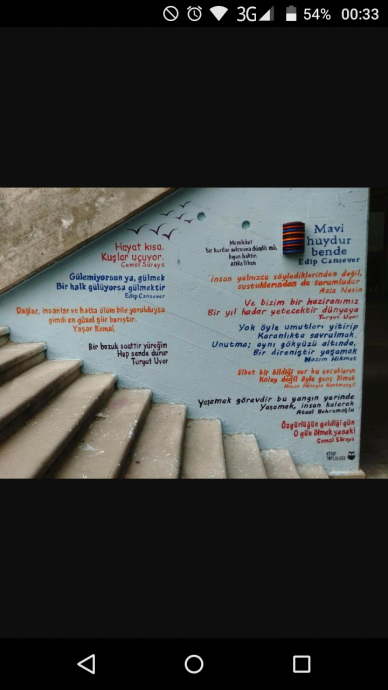 3G 54% 00:33
Hayat kısa.
Kuşlar uçuyor.
Cemal Süreya
Gülemiyorsun ya, gülmek
Bir halk gülüyorsa gülmektir
Edip Cansever
Dağlar, insanlar ve hatta ölüm bile yorulduysa
şimdi en güzel şiir barıştır.
Yaşar Kemal
Bir bozuk saattir yüreğim
Hep sende durur
Turgut Uyar
Memleket
Atilla İlhan
Mavi
huydur
bende
Edip Cansever
insan yalnızca söylediklerinden değil,
sustuklarından da sorumludur
Aziz Nesin
Ve bizim bir haziranımız
Bir yıl kadar yetecektir dünyaya
Turgut Uyar
Yok öyle umutları yitirip
Karanlıkta savrulmak.
Unutma; aynı gökyüzü altında,
Bir direniştir yaşamak
Nazım Hikmet
Elbet bir bildiği var bu çocukların
Kolay değil öyle genç ölmek
Yaşamak görevdir bu yangın yerinde
Yaşamak, insan kalarak
Ataol Behramoğlu
Özgürlüğün geldiği gün
O gün ölmek yasak!
Cemal Süreya